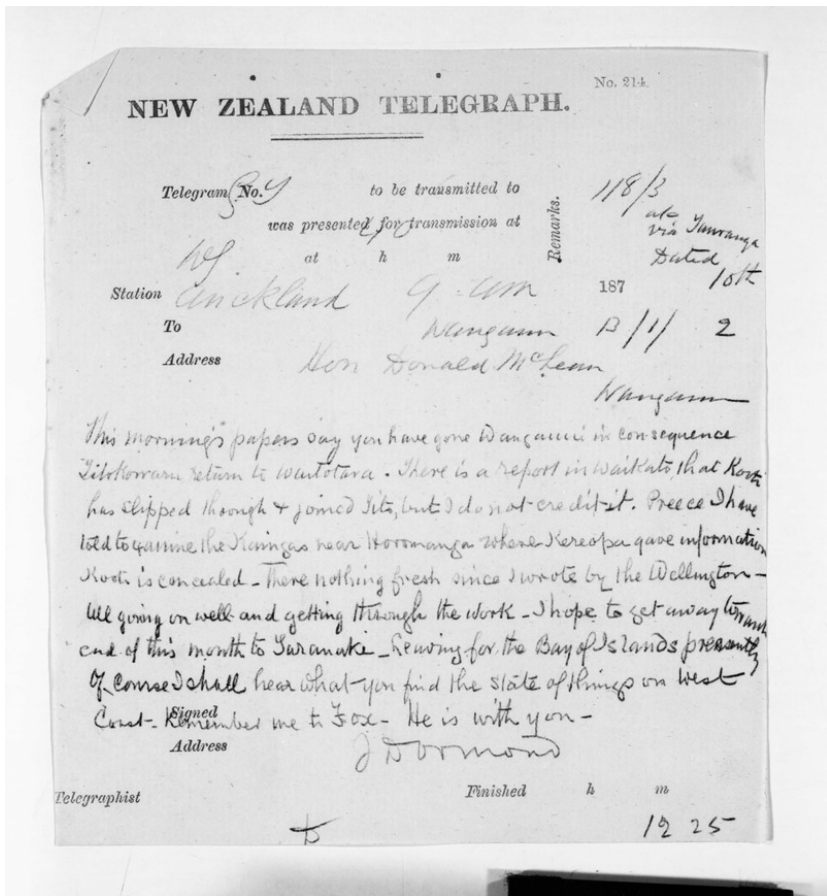 No. 214.
NEW ZEALAND TELEGRAPH.
Telegram No. to be transmitted to
was presented for transmission at
at h m
Remarks.
118/3
via Tauranga
Dated
10th
Station Auckland 9 am 187
To Wanganui 13/1/ 2
Address Hon Donald McLean
Wanganui
This morning's papers say you have gone Wanganui in consequence
Titokowaru return to Waitotara. There is a report in Waikato, that Kooti
has slipped through & joined Tito, but I do not credit it. Preece I have
told to examine the Kaingas near Horomanga where Kereopa gave information
Kooti is concealed - There nothing fresh since I wrote by the Wellington -
All going on well and getting through the work - I hope to get away toward
end of this month to Taranaki - Leaving for the Bay of Islands presently
Of course I shall hear what you find the state of things on West
Coast - Remember me to Fox - He is with you -
Signed
Address J D Ormond
Telegraphist Finished h m
12 25